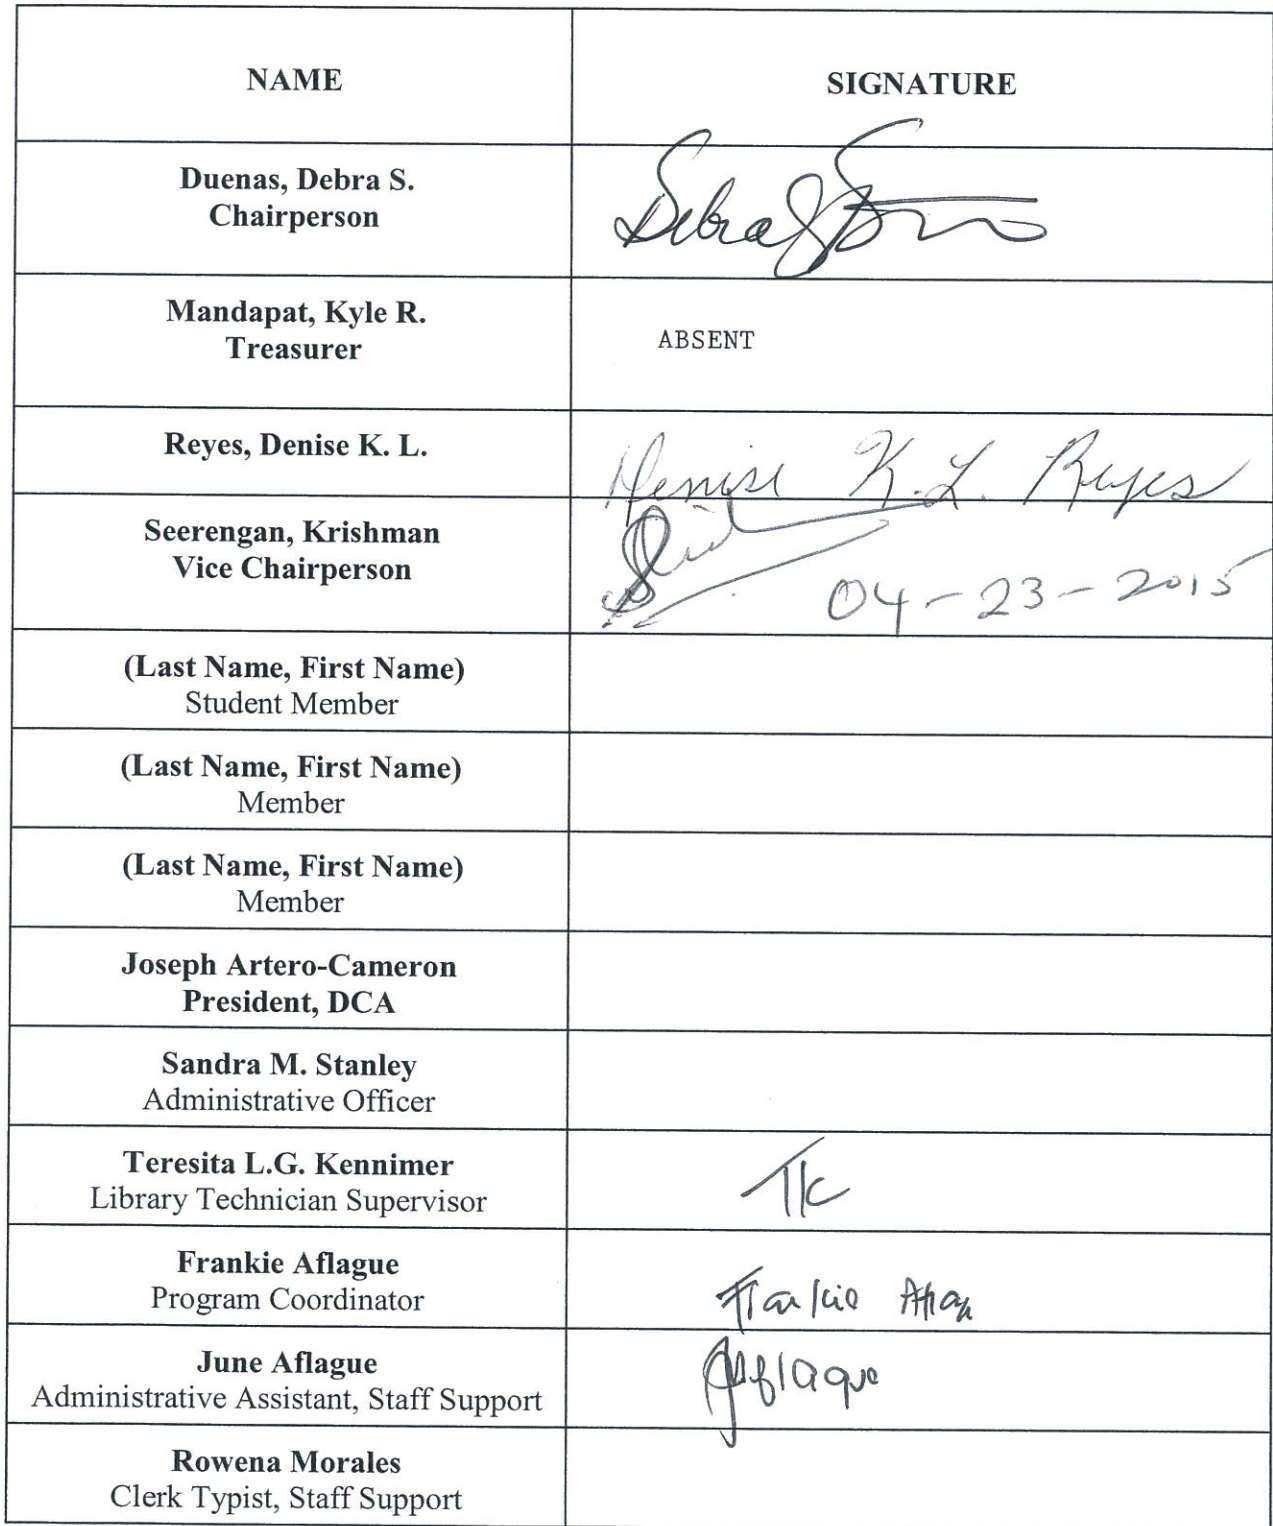 NAME
SIGNATURE
Duenas, Debra S.
Chairperson
Debra S
Mandapat, Kyle R.
Treasurer
ABSENT
Reyes, Denise K. L.
Denise K.L. Reyes
Seerengan, Krishman
Vice Chairperson
04-23-2015
(Last Name, First Name)
Student Member
(Last Name, First Name)
Member
(Last Name, First Name)
Member
Joseph Artero-Cameron
President, DCA
Sandra M. Stanley
Administrative Officer
Teresita L.G. Kennimer
Library Technician Supervisor
TK
Frankie Aflague
Program Coordinator
Frankie
June Aflague
Administrative Assistant, Staff Support
JAflague
Rowena Morales
Clerk Typist, Staff Support